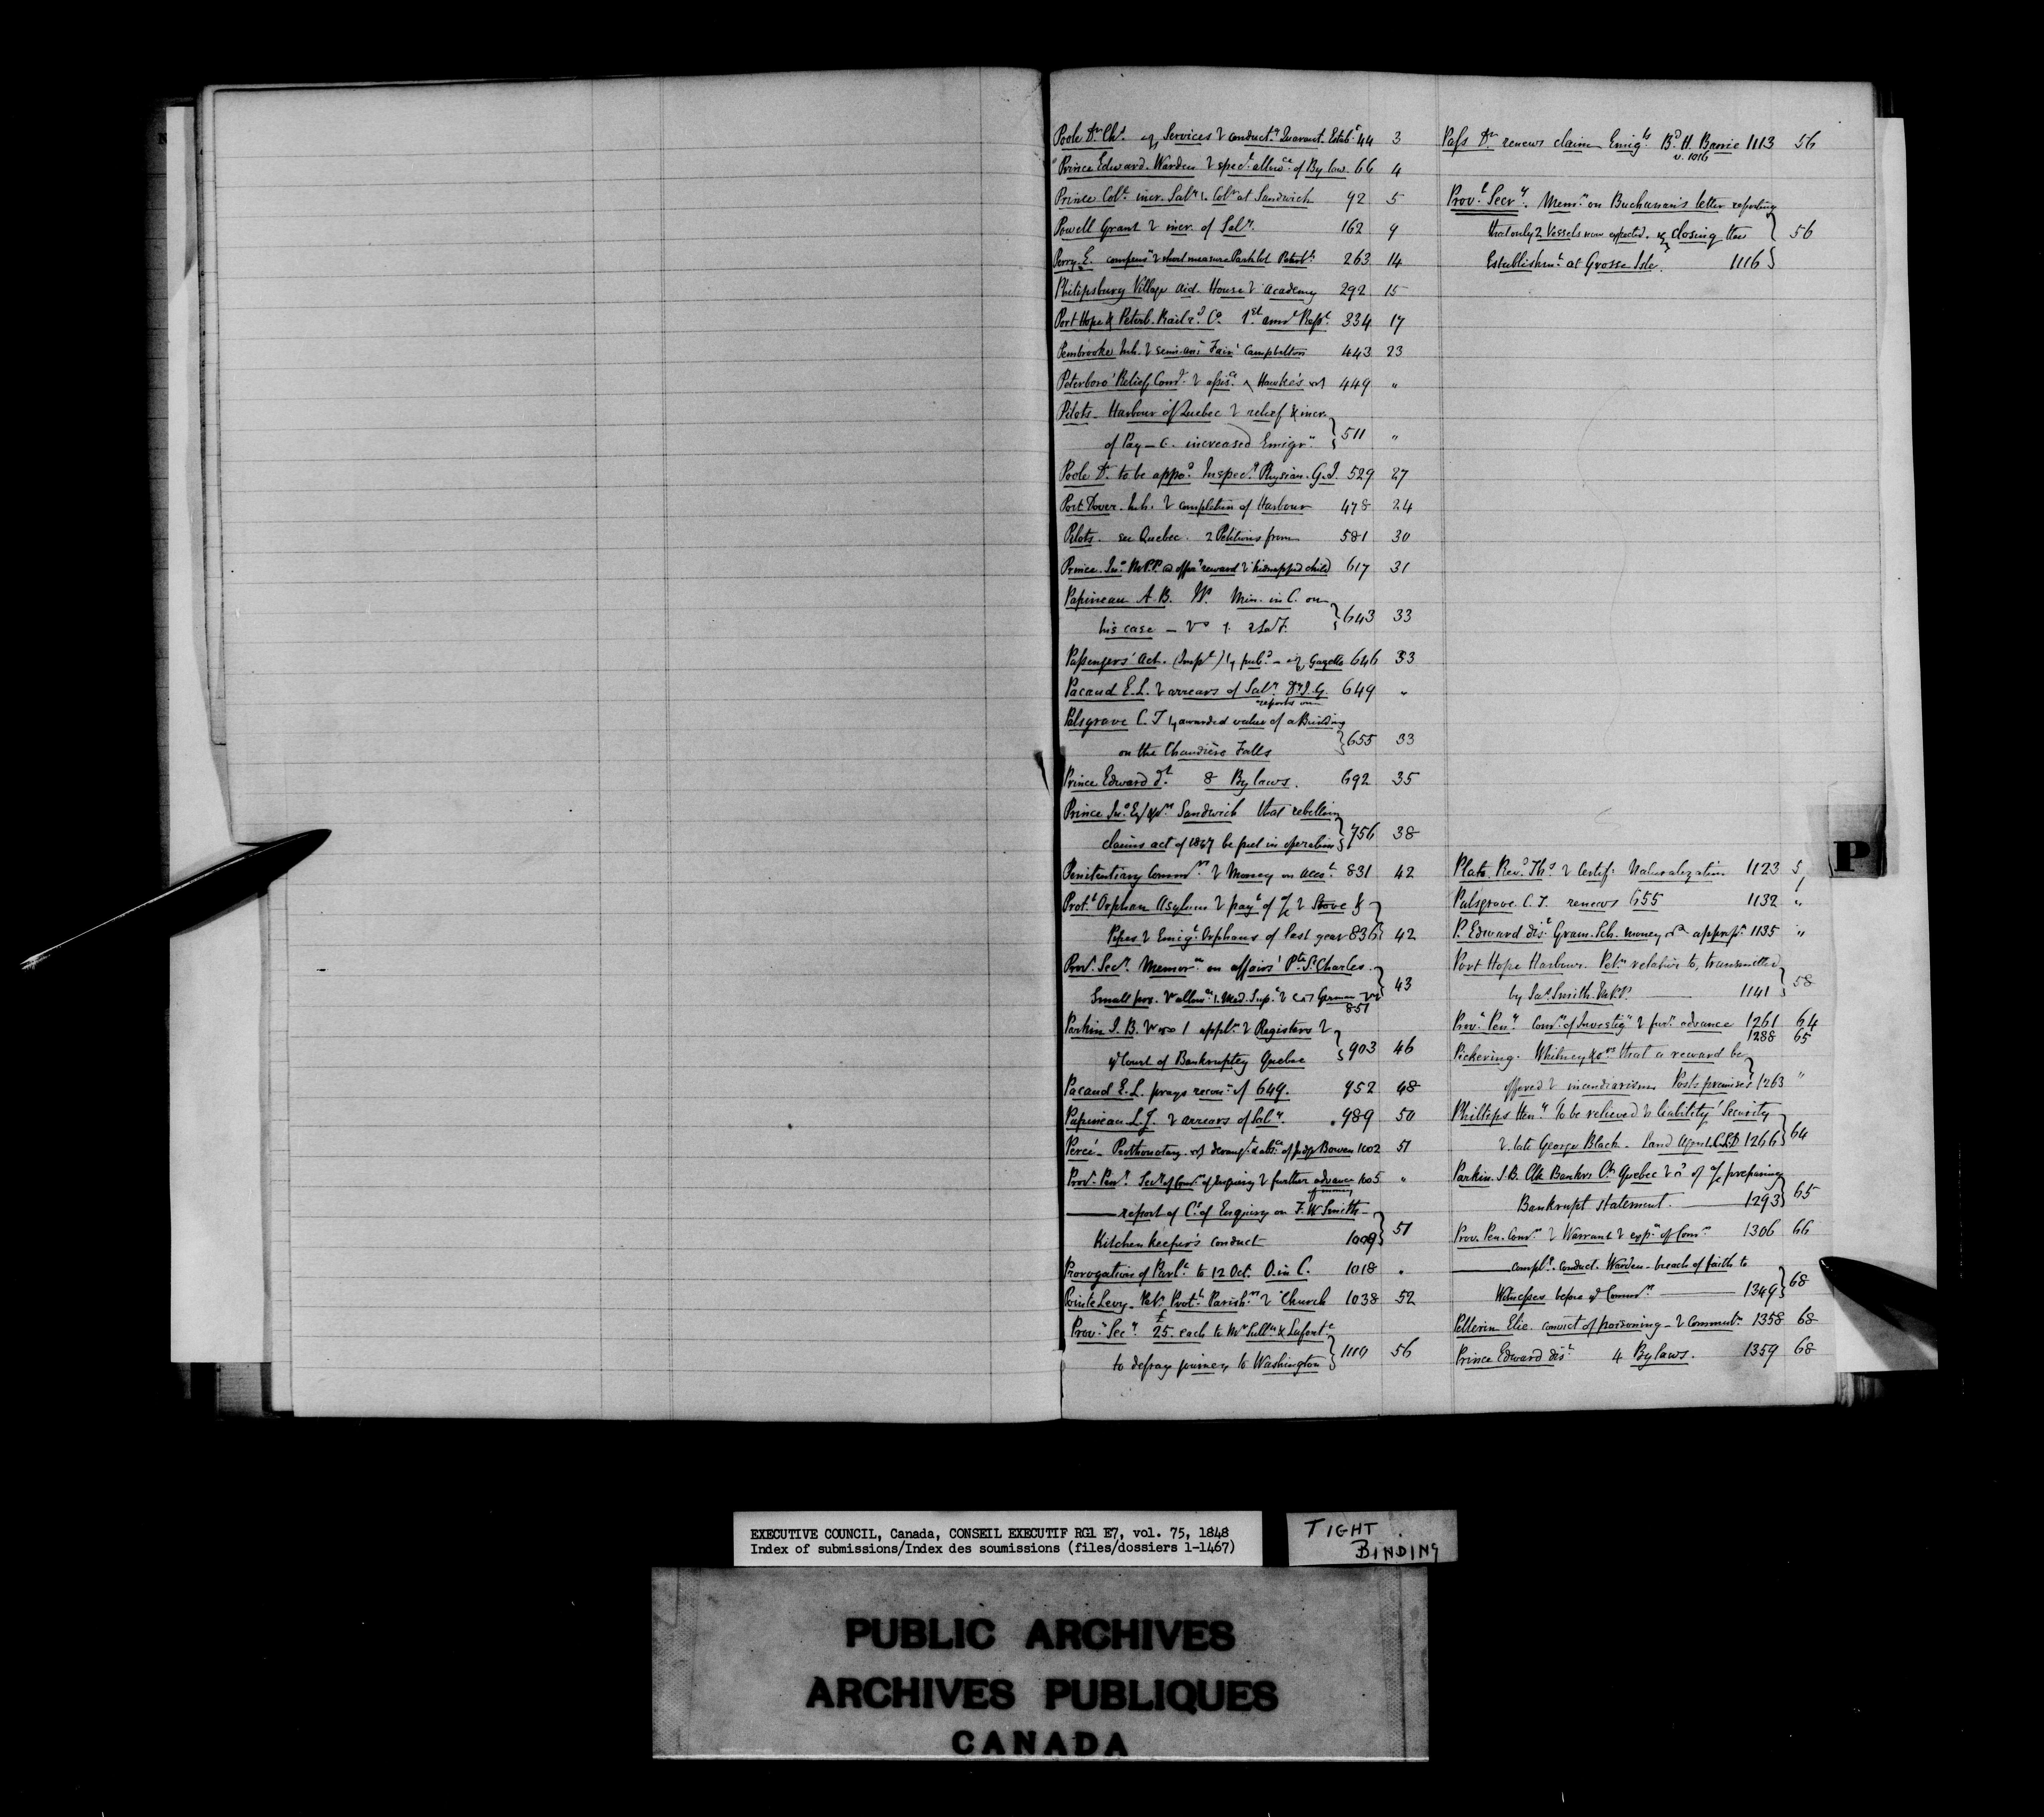 Poole Dr. Chs. Services & conductg Quarant. Estabt 44 3
Prince Edward. Warden & spect. allowce of By law. 66 4
Prince Coln. incr. Saly Colr at Sandwich 92 5
Powell Grant & incr. of Saly. 162 9
Perry E. compensn & short measure Park lot Peterb. 263 14
Philipsburg Village aid. House & Academy 292 15
Port Hope & Peterb. Railrd Co. 1st annl Rept. 334 17
Pembrooke Inh. & semi-anl Fair Campbelton 443 23
Peterboro' Relief Comte. & assisce Hawke's 449 "
Pilots - Harbour of Quebec & relief & incr.
of Pay - increased Emigrn. 511 "
Poole Dr. to be appd. Inspecg Physian. G.I. 529 27
Port Dover. Inh. & completion of Harbour 478 24
Pilots. see Quebec. 2 Petitions from 581 30
Prince. Jno. M.P.P. offerg reward & kidnapped child 617 31
Papineau A. B. W. Min. in C. on
his case - 643 33
Passengers' Act. (Impl) pubd - Gazette 646 33
Pacaud E. L. & arrears of Saly. D.I.G. 649 "
reports on
Palsgrave C. T awarded value of a Building
on the Chaudière Falls 655 33
Prince Edward Dt. 8 By laws. 692 35
Prince Jno. Esq & ors Sandwich that rebellion
claims act of 1847 be put in operation 756 38
Penitentiary Commrs. & Money on acct. 831 42
Prott Orphan Asylum & payt of a/c & Stove &
Pipes & Emigt. Orphans of last year 836 42
Provl. Secy. Memorm on affairs Pte St. Charles.
Small pox. allowce Med. Supt & German 43
851
Parkin J. B. 1 appln & Registers &
Court of Bankruptcy Quebec 903 46
Pacaud E. L. prays reconn. of 649. 952 48
Papineau L. J. & arrears of Saly. 989 50
Percé - Prothonotary derangt & absce of Judge Bowen 1002 51
Provl. Peny. Secy of Comn of Enquiry & further advance 1005 "
of money
report of Cn of Enquiry on F. W Smith -
Kitchen keeper's conduct 1009 51
Prorogation of Parlt. to 12 Oct. O. in C. 1018 "
Pointe Levy - Petn. Prott. Parishrs & Church 1038 52
Provl. Secy. £25. each to Mr Sulln & Lafonte
to defray journey to Washington 1110 56
Pass Dr. renews claim Emigts Bd. H. Barrie 1113 56
v. 1016
Provl. Secry. Memm on Buchanan's letter reporting
that only 2 Vessels now expected. & closing the 56
Establishmt at Grosse Isle. 1116
Plato. Rev. Ths & Certife Naturalization 1123 5
Palsgrave. C. T. renews 655 1132 "
P. Edward dist. Gram. Sch. money appropn. 1135 "
Port Hope Harbour. Petn relative to, transmitted
by Jas. Smith. M.P.P. 1141 58
Provl Peny. Comn of Investign & furr advance 1261 64
1288 65
Pickering. Whitney & ors that a reward be
offered & incendiarism Posts premises 1263 "
Phillips Heny To be relieved & liability Security
& late George Black - Land Agent. C.L.D 1266 64
Parkin. J. B. Clk Bankr Ct Quebec of a/c preparing
Bankrupt Statement. 1293 65
Prov. Pen. Comn & Warrant & expn of Comn 1306 66
complt conduct. Warden - breach of faith to
Witnesses before Commrs 1349 68
Pellerin Elie. convict of poisoning - & commutn 1358 68
Prince Edward dist. 4 By laws. 1359 68
P
EXECUTIVE COUNCIL, Canada, CONSEIL EXECUTIF RG1 E7, vol. 75, 1848
Index of submissions/Index des soumissions (files/dossiers 1-1467)
TIGHT
BINDING
PUBLIC ARCHIVES
ARCHIVES PUBLIQUES
CANADA